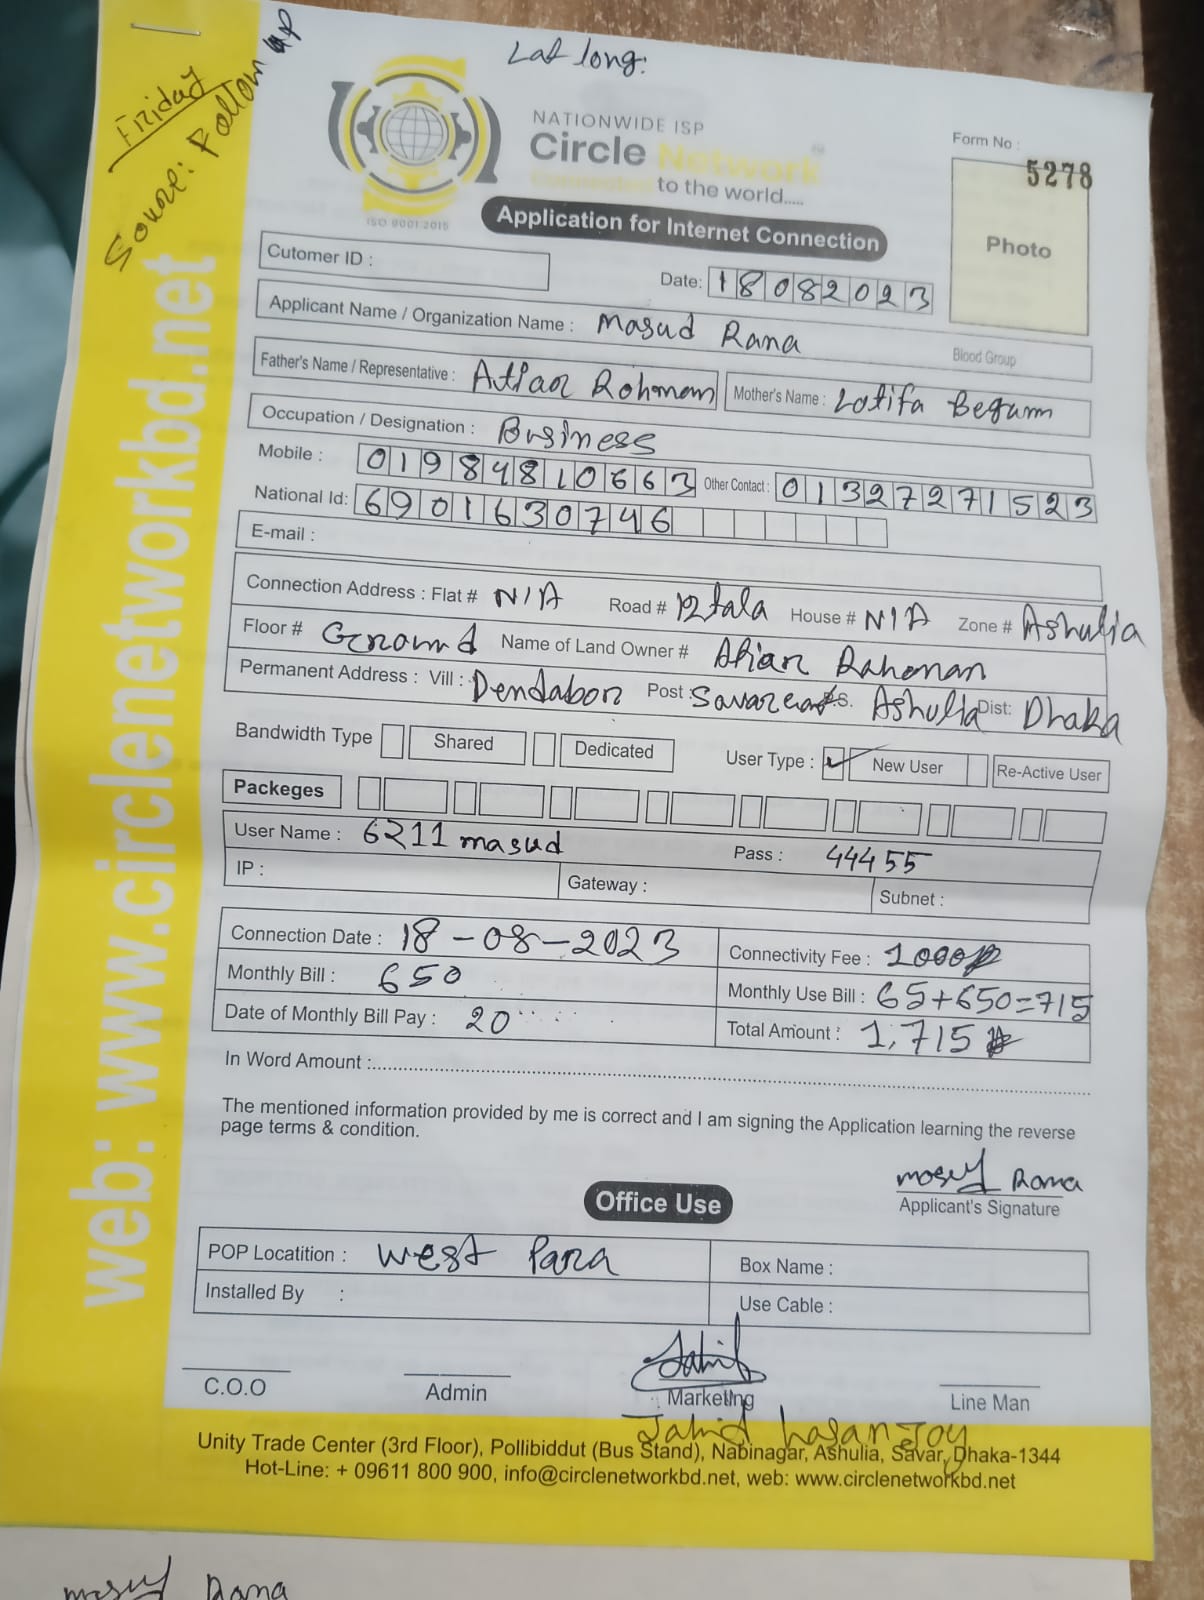 Lat long:
Friday
Source: Follow up
NATIONWIDE ISP
Circle Network
to the world.....
ISO 9001:2015
Form No :
5278
Photo
Application for Internet Connection
Cutomer ID :
Date: 18082023
Applicant Name / Organization Name : Masud Rana
Blood Group
Father's Name / Representative : Atiar Rohman Mother's Name : Lotifa Begum
Occupation / Designation : Business
Mobile : 01984810663 Other Contact : 01327271523
National Id: 6901630746
E-mail :
Connection Address : Flat # N/A Road # 12 tala House # N/A Zone # Ashulia
Floor # Ground Name of Land Owner # Atiar Rahoman
Permanent Address : Vill : Dendabor Post : Savar P.S. Ashulia Dist: Dhaka
Bandwidth Type Shared Dedicated User Type : ✓ New User Re-Active User
Packeges
User Name : 6211 masud Pass : 44455
IP : Gateway : Subnet :
Connection Date : 18-08-2023 Connectivity Fee : 1000
Monthly Bill : 650 Monthly Use Bill : 65+650=715
Date of Monthly Bill Pay : 20 Total Amount : 1,715
In Word Amount :
The mentioned information provided by me is correct and I am signing the Application learning the reverse
page terms & condition.
Masud Rana
Applicant's Signature
Office Use
POP Locatition : West Para Box Name :
Installed By : Use Cable :
Jahid
C.O.O Admin Marketing Line Man
Jahid hasan Joy
Unity Trade Center (3rd Floor), Pollibiddut (Bus Stand), Nabinagar, Ashulia, Savar, Dhaka-1344
Hot-Line: + 09611 800 900, info@circlenetworkbd.net, web: www.circlenetworkbd.net
web: www.circlenetworkbd.net
Masud Rana